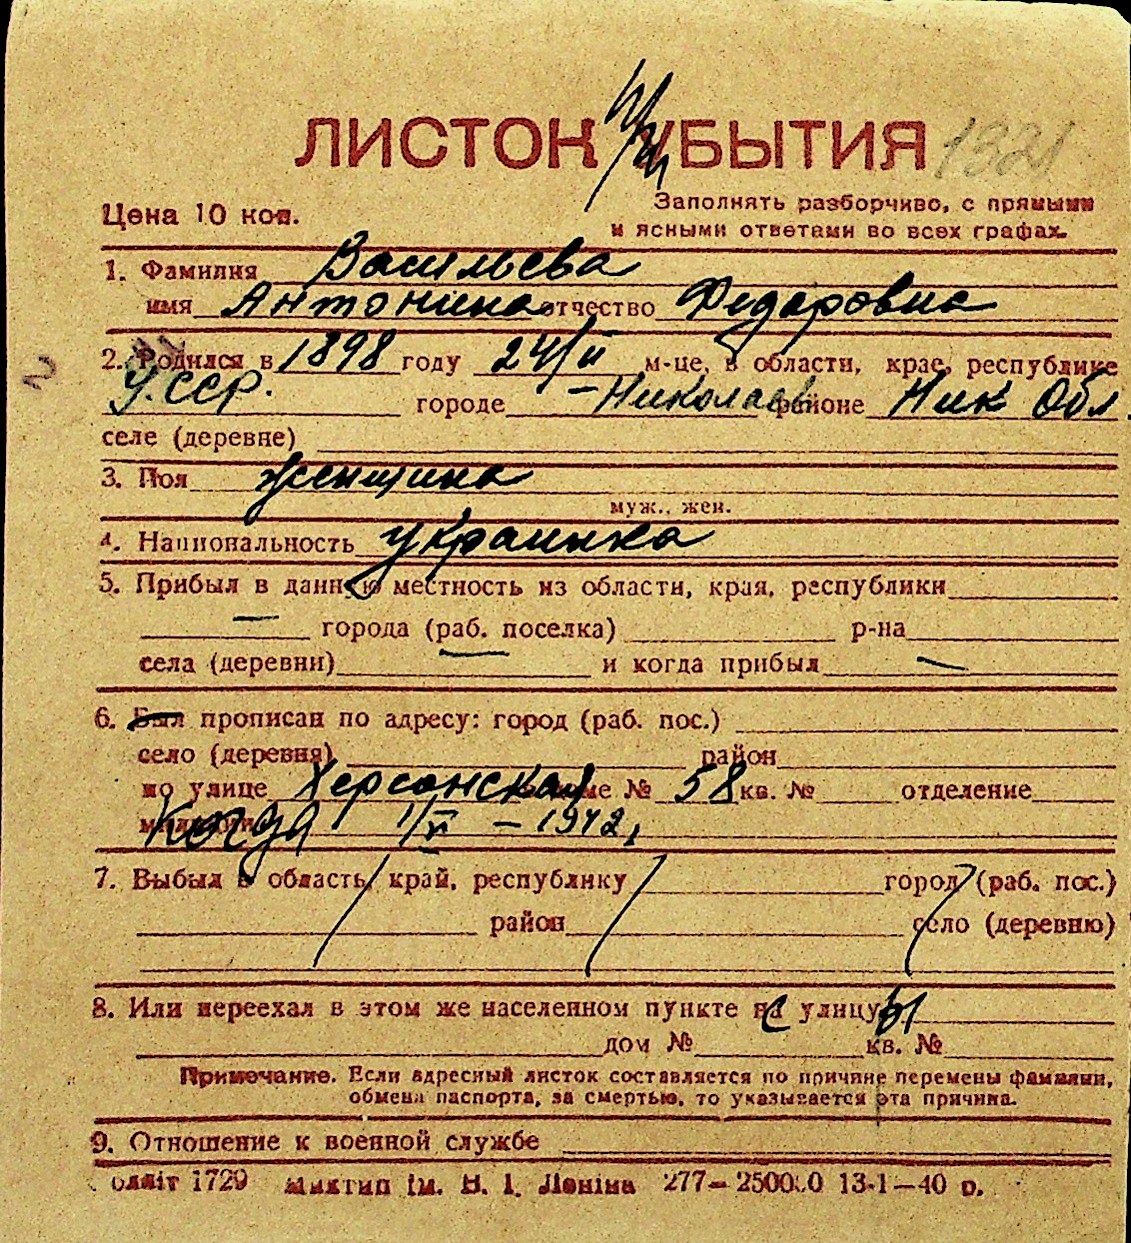 ЛИСТОК УБЫТИЯ 1321
Цена 10 коп.
Заполнять разборчиво, с прямыми
и ясными ответами во всех графах.
1. Фамилия Васильева
имя Антонина отчество Федаровна
2. Родился в 1898 году 24/II м-це, в области, крае, республике
У.ССР. городе - Николаев районе Ник Обл.
селе (деревне)
3. Пол женщина
муж., жен.
4. Национальность украинка
5. Прибыл в данную местность из области, края, республики
— города (раб. поселка) — р-на
села (деревни) и когда прибыл —
6. Был прописан по адресу: город (раб. пос.)
село (деревня) район
по улице Херсонская доме № 58 кв. № отделение
милиции Когда 1/VI - 1942,
7. Выбыл в область, край, республику город (раб. пос.)
район село (деревню)
8. Или переехал в этом же населенном пункте с улицы
дом № кв. №
Примечание. Если адресный листок составляется по причине перемены фамилии,
обмена паспорта, за смертью, то указывается эта причина.
9. Отношение к военной службе
1729 Миктип ім. В. І. Леніна 277— 250000 13-1—40 р.